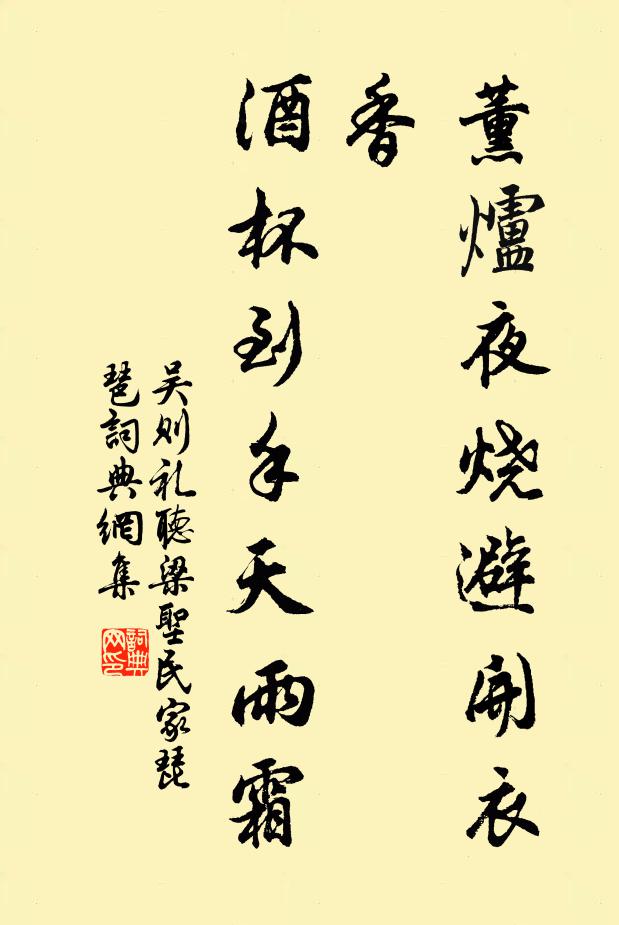 薰爐夜烧避開衣
香
酒杯到手天雨霜
吴则礼聽梁聖民家琵
琶詞典網集
詞典
网印